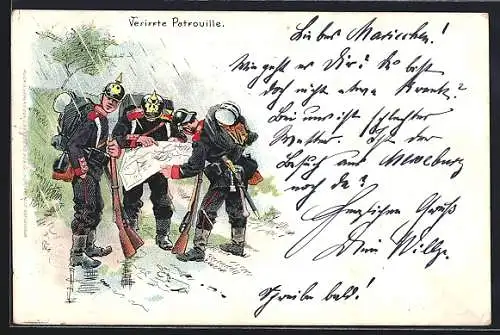 Verirrte Patrouille.
Liebes Mariechen!
Wie geht es Dir? Du bist
doch nicht etwa krank?
Bei uns ist schlechtes
Wetter. Ist der
Besuch aus
noch da?
Herzlichen Gruß
Dein Willy.
Schreibe bald!